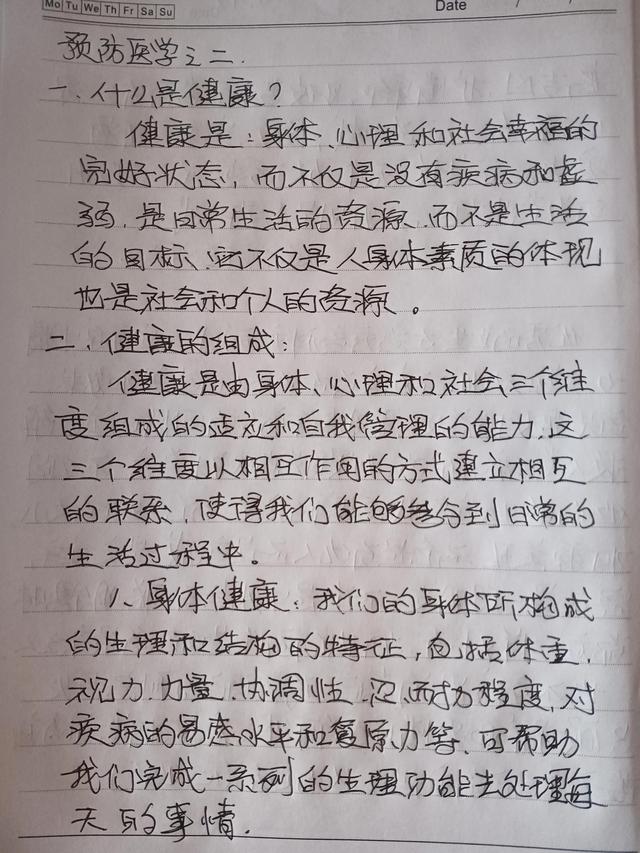 Mo Tu We Th Fr Sa Su
Date / /
预防医学之二.
一.什么是健康?
健康是:身体、心理和社会幸福的
完好状态,而不仅是没有疾病和虚
弱.是日常生活的资源.而不是生活
的目标、它不仅是人身体素质的体现
也是社会和个人的资源。
二.健康的组成:
健康是由身体、心理和社会三个维
度组成的适应和自我管理的能力.这
三个维度以相互作用的方式建立相互
的联系,使得我们能够参合到日常的
生活过程中。
1、身体健康:我们的身体所构成
的生理和结构的特征,包括体重.
视力.力量.协调性.忍耐力程度,对
疾病的易感水平和复原力等、可帮助
我们完成一系列的生理功能去处理每
天的事情.